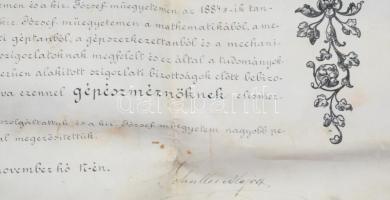 men és a kir. József műegyetemen az 1884-ik tan
kir. József műegyetemen a mathematikából, a me
i géptanból, a gépszerkezettanból és a mechani
szigorlatoknak megfelelt és ez által a tudományok
erűen alakitott szigorlati bizottságok előtt bebizo
va ezennel gépészmérnöknek elismer
szolgáltattuk és a kir. József műegyetem nagyobb pe
al megerősitettük.
november hó 17-én.